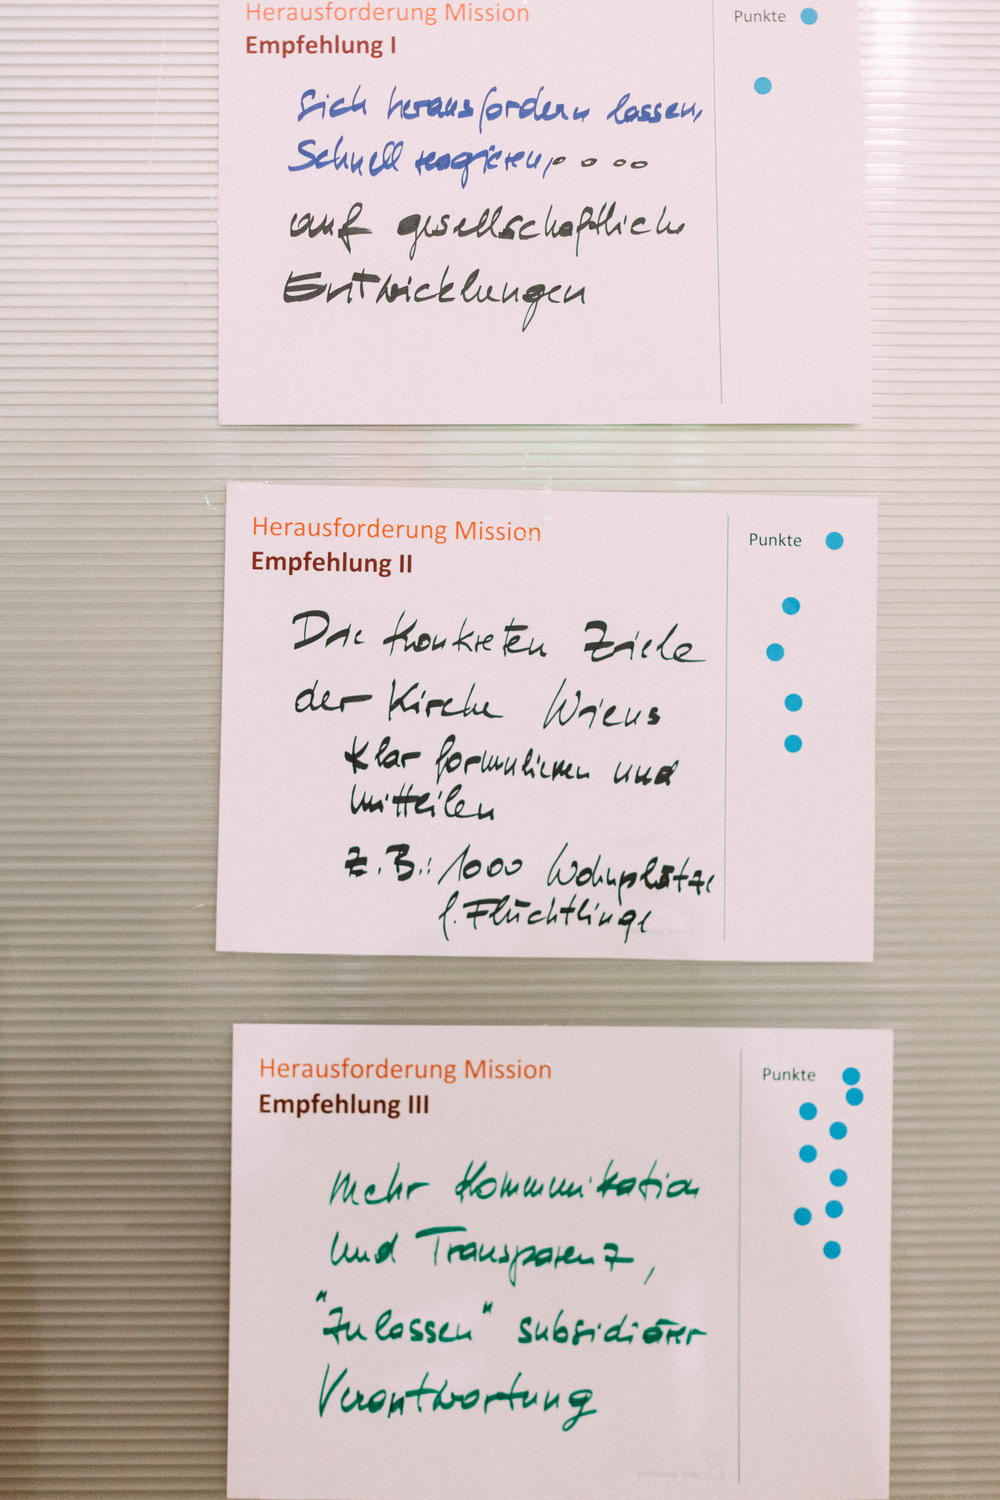 Herausforderung Mission
Empfehlung I
Punkte
Sich herausfordern lassen,
Schnell reagieren,....
auf gesellschaftliche
Entwicklungen
Herausforderung Mission
Empfehlung II
Punkte
Die konkreten Ziele
der Kirche Wiens
klar formulieren und
mitteilen
z.B.: 1000 Wohnplätze
f. Flüchtlinge
Herausforderung Mission
Empfehlung III
Punkte
Mehr Kommunikation
und Transparenz,
"Zulassen" subsidiärer
Verantwortung